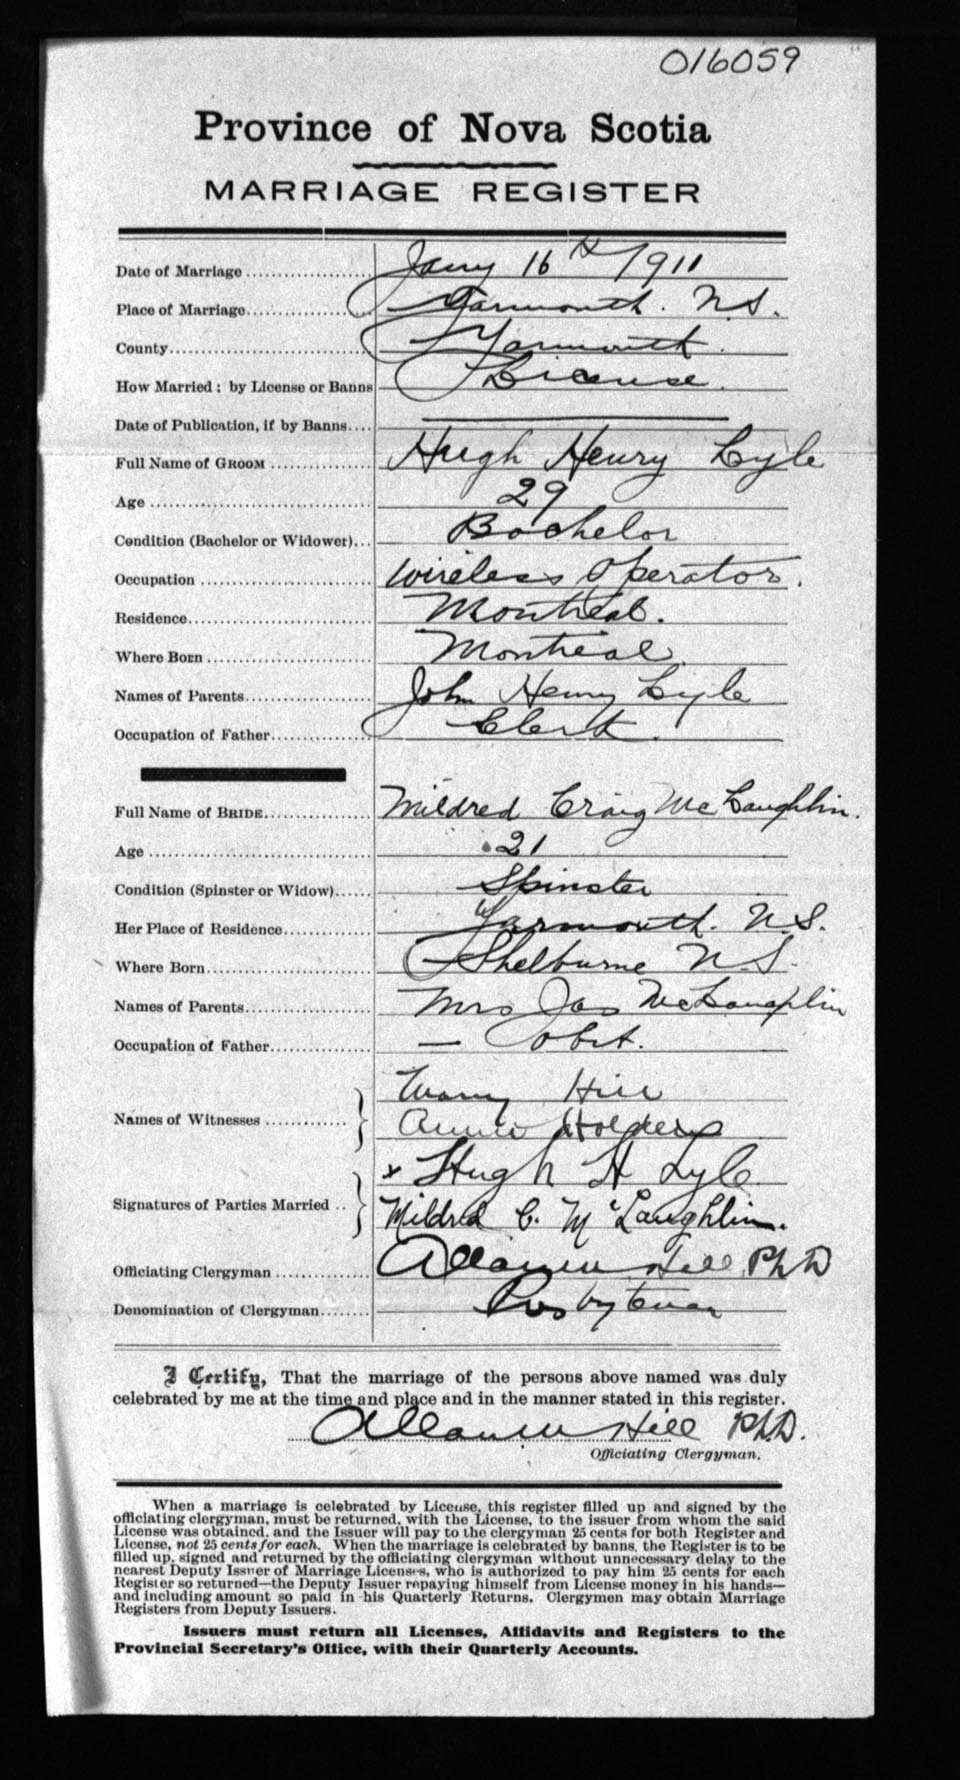 016059
Province of Nova Scotia
MARRIAGE REGISTER
Date of Marriage Jany 16th 1911
Place of Marriage Yarmouth. N.S.
County Yarmouth.
How Married: by License or Banns License.
Date of Publication, if by Banns
Full Name of GROOM Hugh Henry Lyle
Age 29
Condition (Bachelor or Widower) Bachelor
Occupation Wireless Operator.
Residence Montreal.
Where Born Montreal.
Names of Parents John Henry Lyle
Occupation of Father Clerk.
Full Name of BRIDE Mildred Craig McLaughlin.
Age 21
Condition (Spinster or Widow) Spinster
Her Place of Residence Yarmouth. N.S.
Where Born Shelburne N.S.
Names of Parents Mrs Jas McLaughlin
Occupation of Father — obit.
Hill
Names of Witnesses Annie Holders
x Hugh H Lyle
Signatures of Parties Married Mildred C. McLaughlin.
Officiating Clergyman Hill PhD
Denomination of Clergyman Presbyterian
I Certify, That the marriage of the persons above named was duly
celebrated by me at the time and place and in the manner stated in this register.
Hill Ph.D.
Officiating Clergyman.
When a marriage is celebrated by License, this register filled up and signed by the
officiating clergyman, must be returned, with the License, to the issuer from whom the said
License was obtained, and the Issuer will pay to the clergyman 25 cents for both Register and
License, not 25 cents for each. When the marriage is celebrated by banns, the Register is to be
filled up, signed and returned by the officiating clergyman without unnecessary delay to the
nearest Deputy Issuer of Marriage Licenses, who is authorized to pay him 25 cents for each
Register so returned—the Deputy Issuer repaying himself from License money in his hands—
and including amount so paid in his Quarterly Returns. Clergymen may obtain Marriage
Registers from Deputy Issuers.
Issuers must return all Licenses, Affidavits and Registers to the
Provincial Secretary's Office, with their Quarterly Accounts.